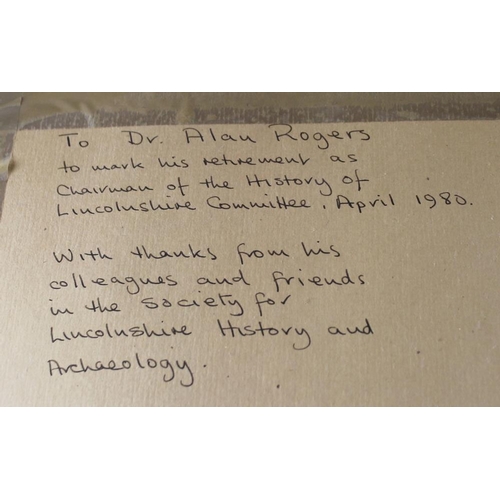 To Dr. Alan Rogers
to mark his retirement as
Chairman of the History of
Lincolnshire Committee. April 1980.
With thanks from his
colleagues and friends
in the Society for
Lincolnshire History and
Archaeology.